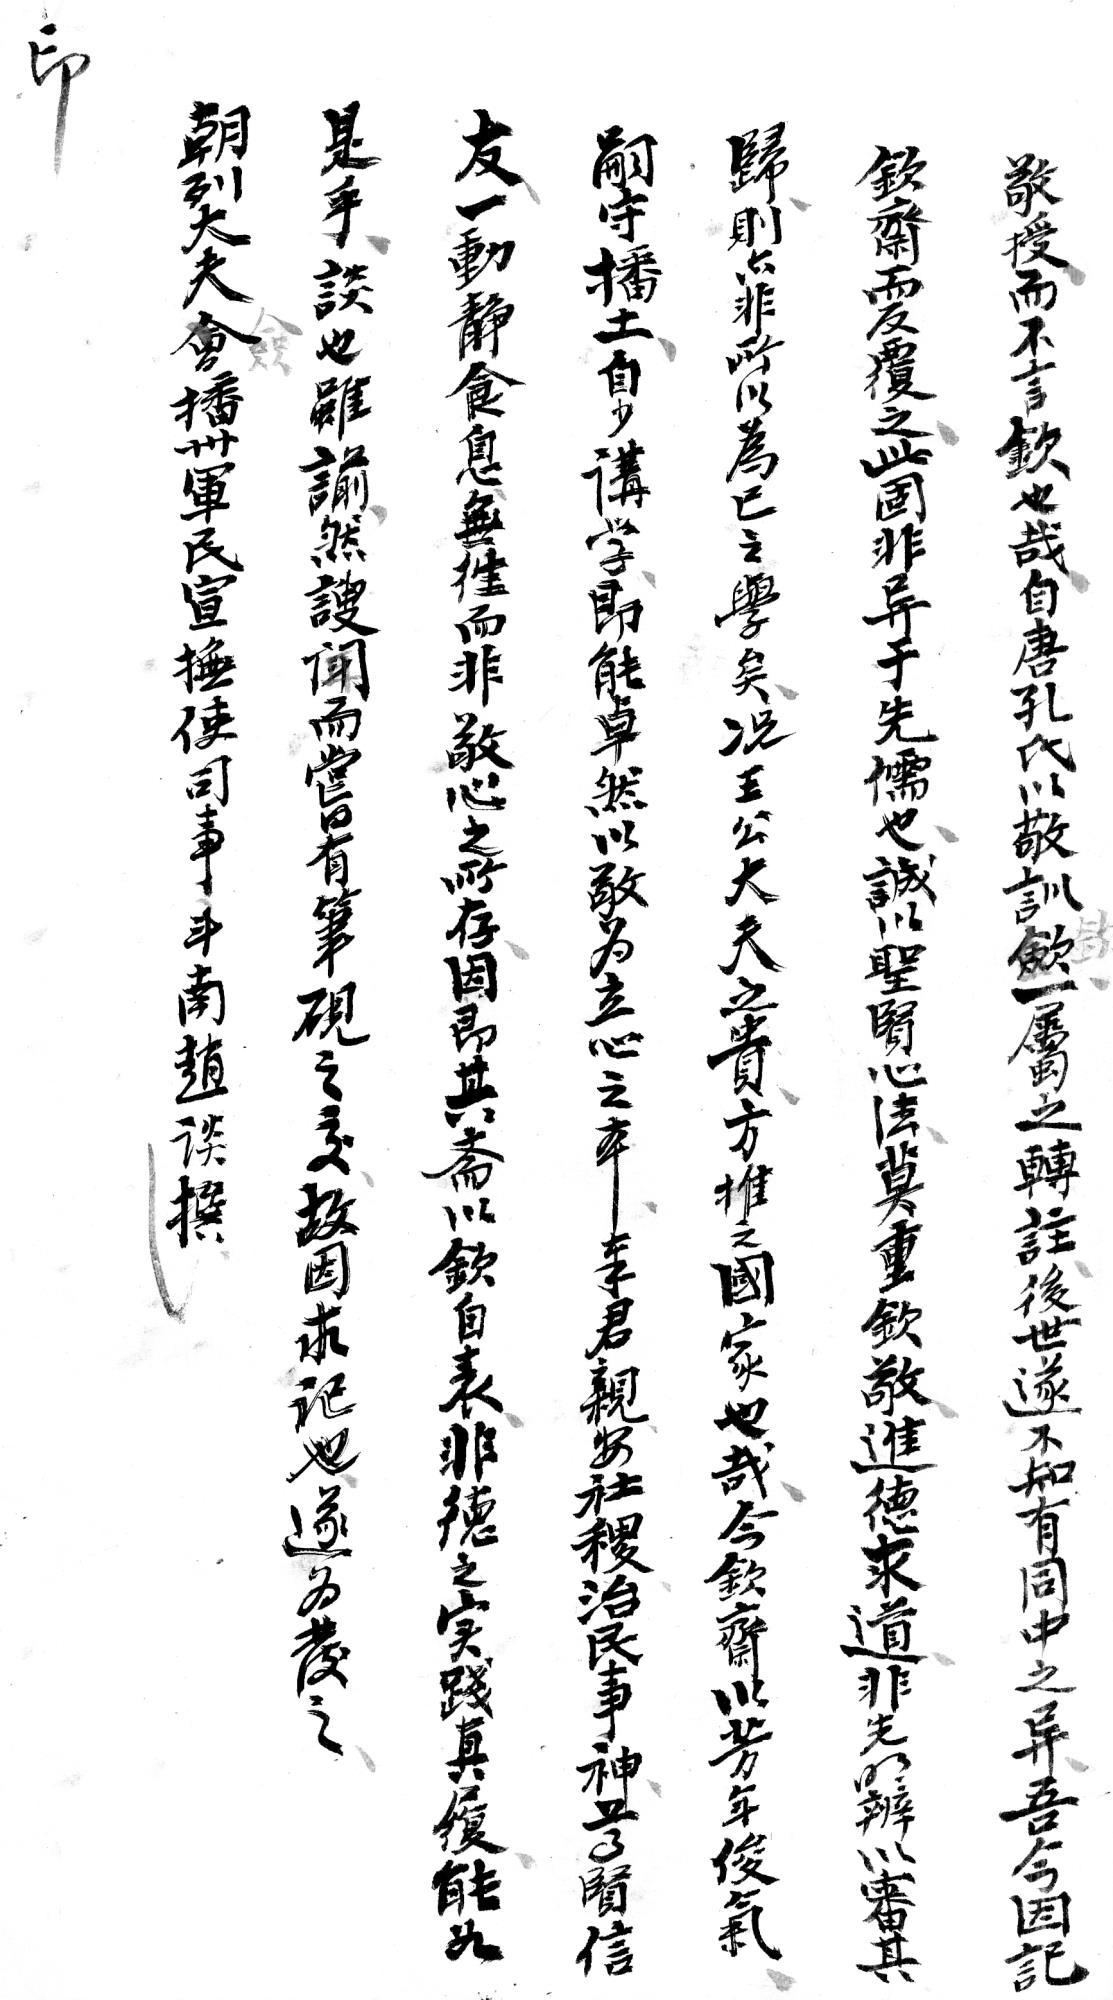 敬授而不言欽也哉自唐孔氏以敬訓欽一屬之轉註後世遂不知有同中之异吾今因記
欽齋而反覆之此固非异于先儒也誠以聖賢心法莫重欽敬進德求道非先明辨以審其
歸則亦非所以為己之學矣况王公大夫之貴方推之國家也哉今欽齋以芳年俊氣
嗣守播土自少講学即能卓然以敬为立心之本事君親安社稷治民事神尊賢信
友一動静食息無徃而非敬心之所存因即其斋以欽自表非德之实踐真履能如
是乎談也雖謭然謏聞而嘗旨有筆硯之交故因求記也遂为發之
朝列大夫僉播州軍民宣撫使司事斗南趙談撰
印